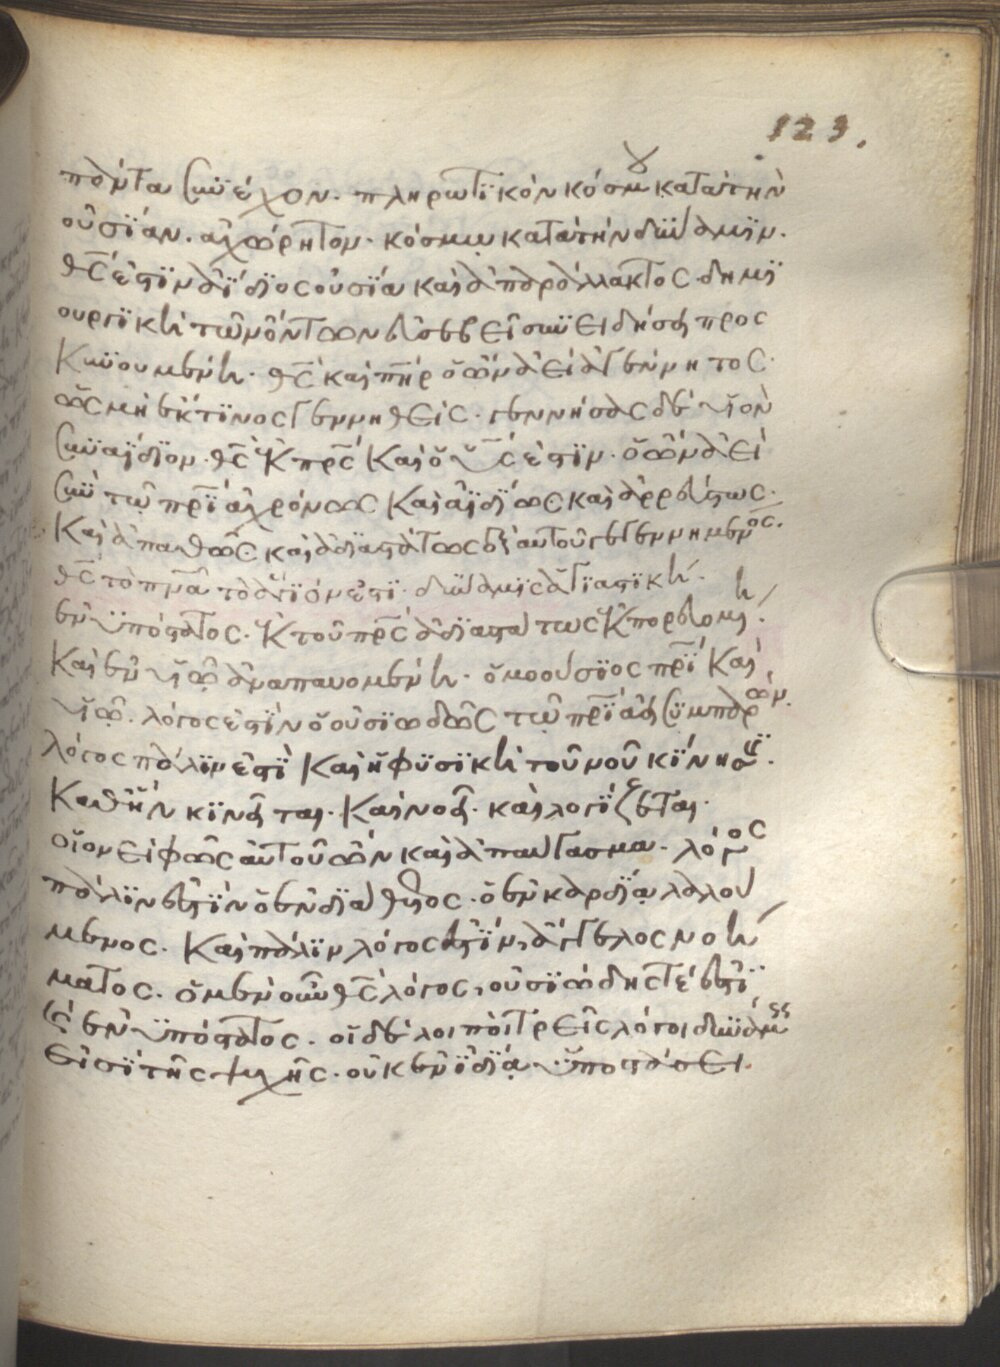 123.
πάντα συνέχον. πληρωτικὸν κόσμου κατὰ τὴν
οὐσίαν. ἀχώρητον. κόσμω κατὰ τὴν δύναμιν.
θς ἐστὶν ἀΐδιος οὐσία καὶ ἀπαράλλακτος. δημι
ουργικὴ τῶν ὄντων εὐσεβεῖ συνειδήσει προς
κυνουμένη. θς καὶ πηρ ὁ ὢν ἀεὶ ἀγέννητος.
ὡς μὴ ἔκ τινος γεννηθείς. γεννήσας δὲ υἱὸν
συναΐδιον. θς ἐκ πρς καὶ ὁ υς ἐστιν. ὁ ὢν ἀεὶ
σὺν τῷ πρι ἀχρόνως καὶ ἀϊδίως καὶ ἀρρεύστως.
καὶ ἀπαθῶς καὶ ἀδιαστάτως ἐξ αὐτοῦ γεγεννημένος.
θς τὸ πνα τὸ ἅγιόν ἐστι. δύναμις ἁγιαστικὴ.
ἐνυπόστατος. ἐκ τοῦ πρς ἀδιαστάτως ἐκπορευομένη.
καὶ ἐν υἱῷ ἀναπαυομένη. ὁμοούσιος πρι καὶ
υἱῷ. λόγος ἐστὶν ὁ οὐσιωδῶς τῷ πρι ἀεὶ συμπαρών.
λόγος πάλιν ἐστὶ καὶ ἡ φυσικὴ τοῦ νοῦ κίνησις.
καθ' ἣν κινεῖται. καὶ νοεῖ. καὶ λογίζεται.
οἱονεὶ φῶς αὐτοῦ ὢν καὶ ἀπαύγασμα. λόγος
πάλιν ἐστὶν ὁ ἐνδιάθετος. ὁ ἐν καρδίᾳ λαλού
μενος. καὶ πάλιν λόγος ἐστὶν, ἄγγελος νοή
ματος. ὁ μὲν οὖν θς λόγος, οὐσιώδης τέ ἐστι
καὶ ἐνυπόστατος. οἱ δὲ λοιποὶ τρεῖς λόγοι δυνάμεις
εἰσὶ τῆς ψυχῆς. οὐκ ἐν ἰδίᾳ ὑποστάσει.